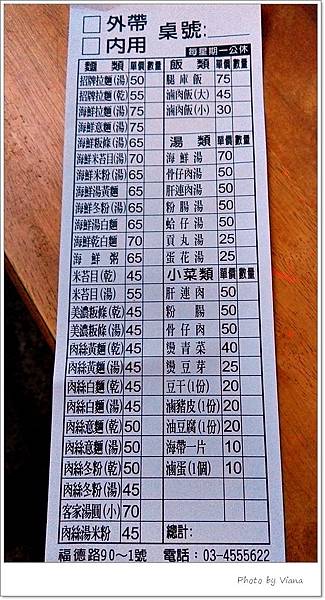 □外帶 桌號:
□內用 每星期一公休
麵類 單價 數量 飯類 單價 數量
招牌拉麵(湯) 50 腿庫飯 75
招牌拉麵(乾) 55 滷肉飯(大) 45
海鮮拉麵(湯) 75 滷肉飯(小) 30
海鮮意麵(湯) 75
海鮮粄條(湯) 65 湯類 單價 數量
海鮮米苔目(湯) 70 海鮮湯 70
海鮮米粉(湯) 65 骨仔肉湯 50
海鮮湯黃麵 65 肝連肉湯 50
海鮮冬粉(湯) 65 粉腸湯 50
海鮮湯白麵 65 蛤仔湯 50
海鮮乾白麵 70 貢丸湯 25
海鮮粥 65 蛋花湯 25
米苔目(乾) 45 小菜類 單價 數量
米苔目(湯) 55 肝連肉 50
美濃粄條(乾) 45 粉腸 50
美濃粄條(湯) 45 骨仔肉 50
肉絲黃麵(乾) 45 燙青菜 40
肉絲黃麵(湯) 45 燙豆芽 25
肉絲白麵(乾) 45 豆干(1份) 20
肉絲白麵(湯) 45 滷豬皮(1份) 20
肉絲意麵(乾) 50 油豆腐(1份) 20
肉絲意麵(湯) 50 海帶一片 10
肉絲冬粉(乾) 50 滷蛋(1個) 10
肉絲冬粉(湯) 45
客家湯圓(小) 70
肉絲湯米粉 45 總計:
福德路90～1號 電話:03-4555622
Photo by Viana